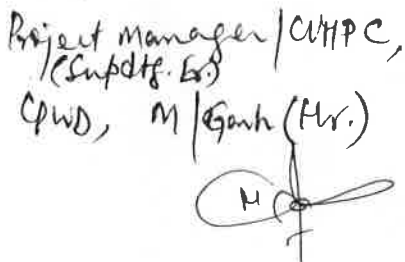 Project Manager/CUHPC,
(Supdtg. Er.)
CPWD, M/Garh (Hr.)